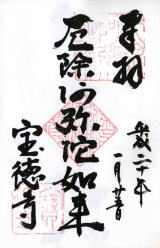 奉拝
平成二十年
一月廿一日
厄除阿弥陀如来
宝徳寺